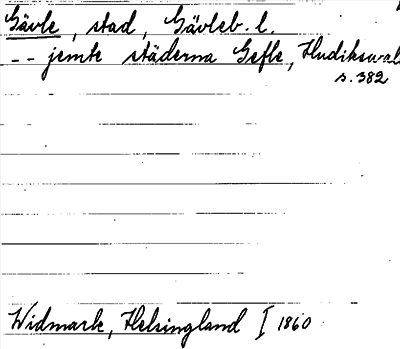 Gävle, stad, Gävleb. l.
-- jemte städerna Gefle, Hudikswal
s. 382
Widmark, Helsingland I 1860